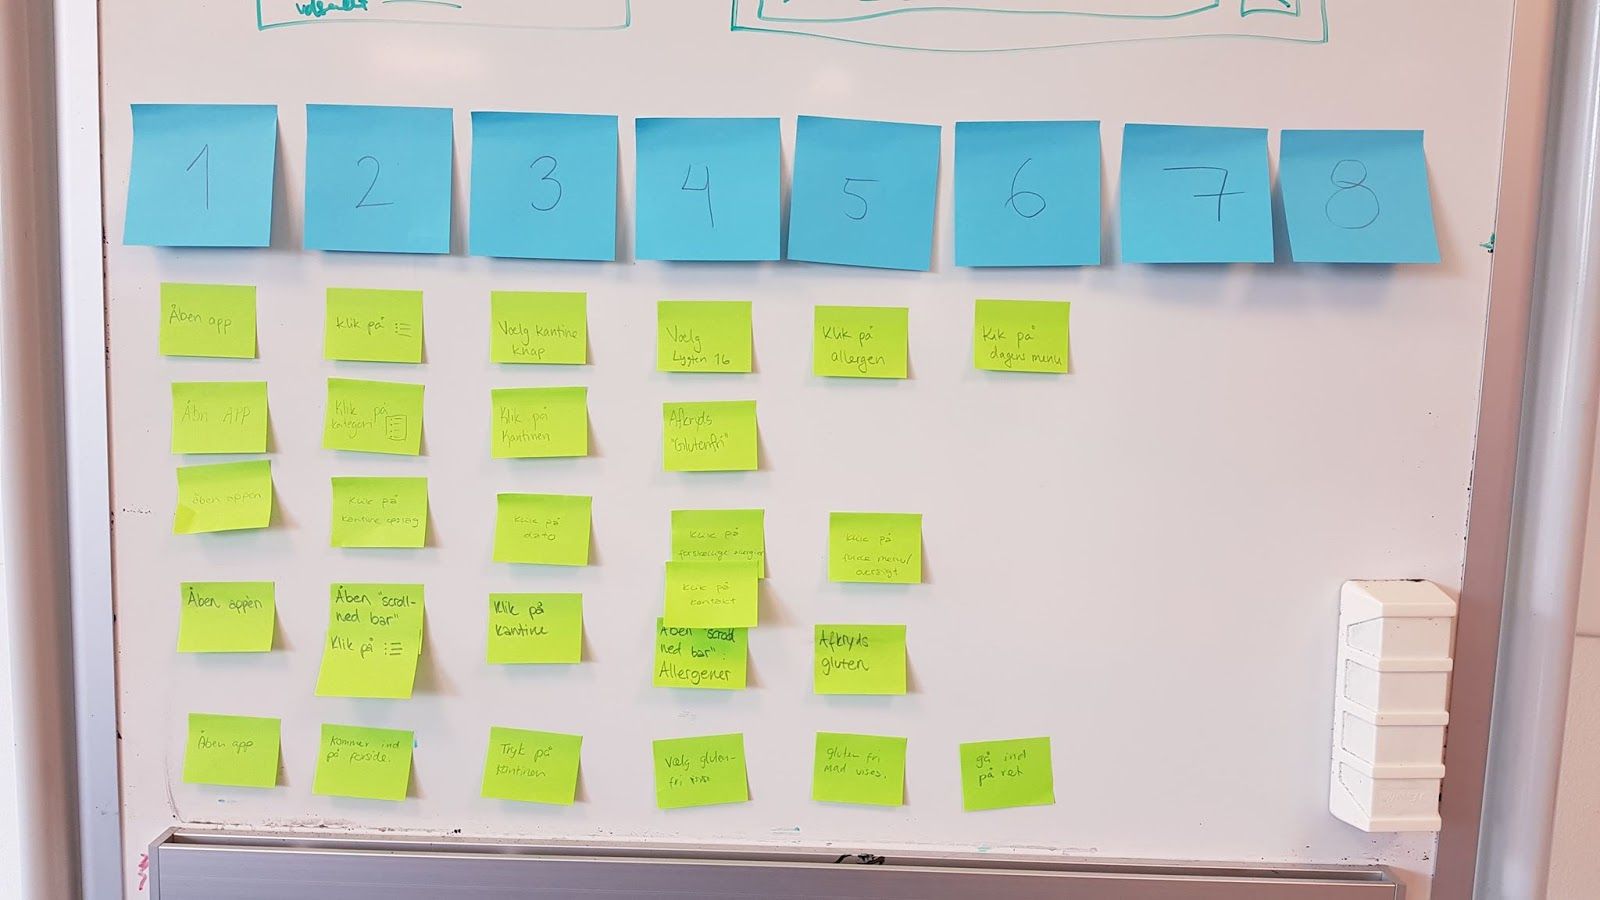 1
2
3
4
5
6
7
8
Åben app
Klik på
Vælg kantine
knap
Vælg
Lygten 16
Klik på
allergen
Klik på
dagens menu
Åbn APP
Klik på
kategori
Klik på
Kantinen
Afkryds
"Glutenfri"
Åben appen
Klik på
kantine opslag
Klik på
dato
Klik på
forskellige allergier
Klik på
kontakt
Klik på
menu/
oversigt
Åben appèn
Åben "scroll-
ned bar"
Klik på
Klik på
kantine
Åben "scroll
ned bar":
Allergener
Afkryds
gluten
Åben app
Kommer ind
på forside.
Tryk på
Kantinen
Vælg gluten-
fri
gluten fri
mad vises.
gå ind
på ret